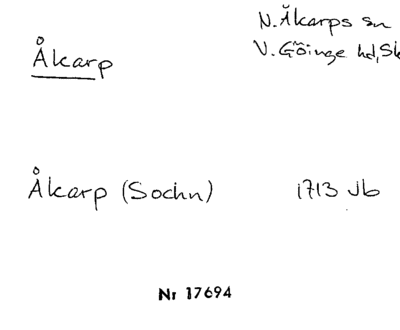 N. Åkarps sn
Åkarp
V. Göinge hd, Sk
Åkarp (Sochn) 1713 Jb
Nr 17694